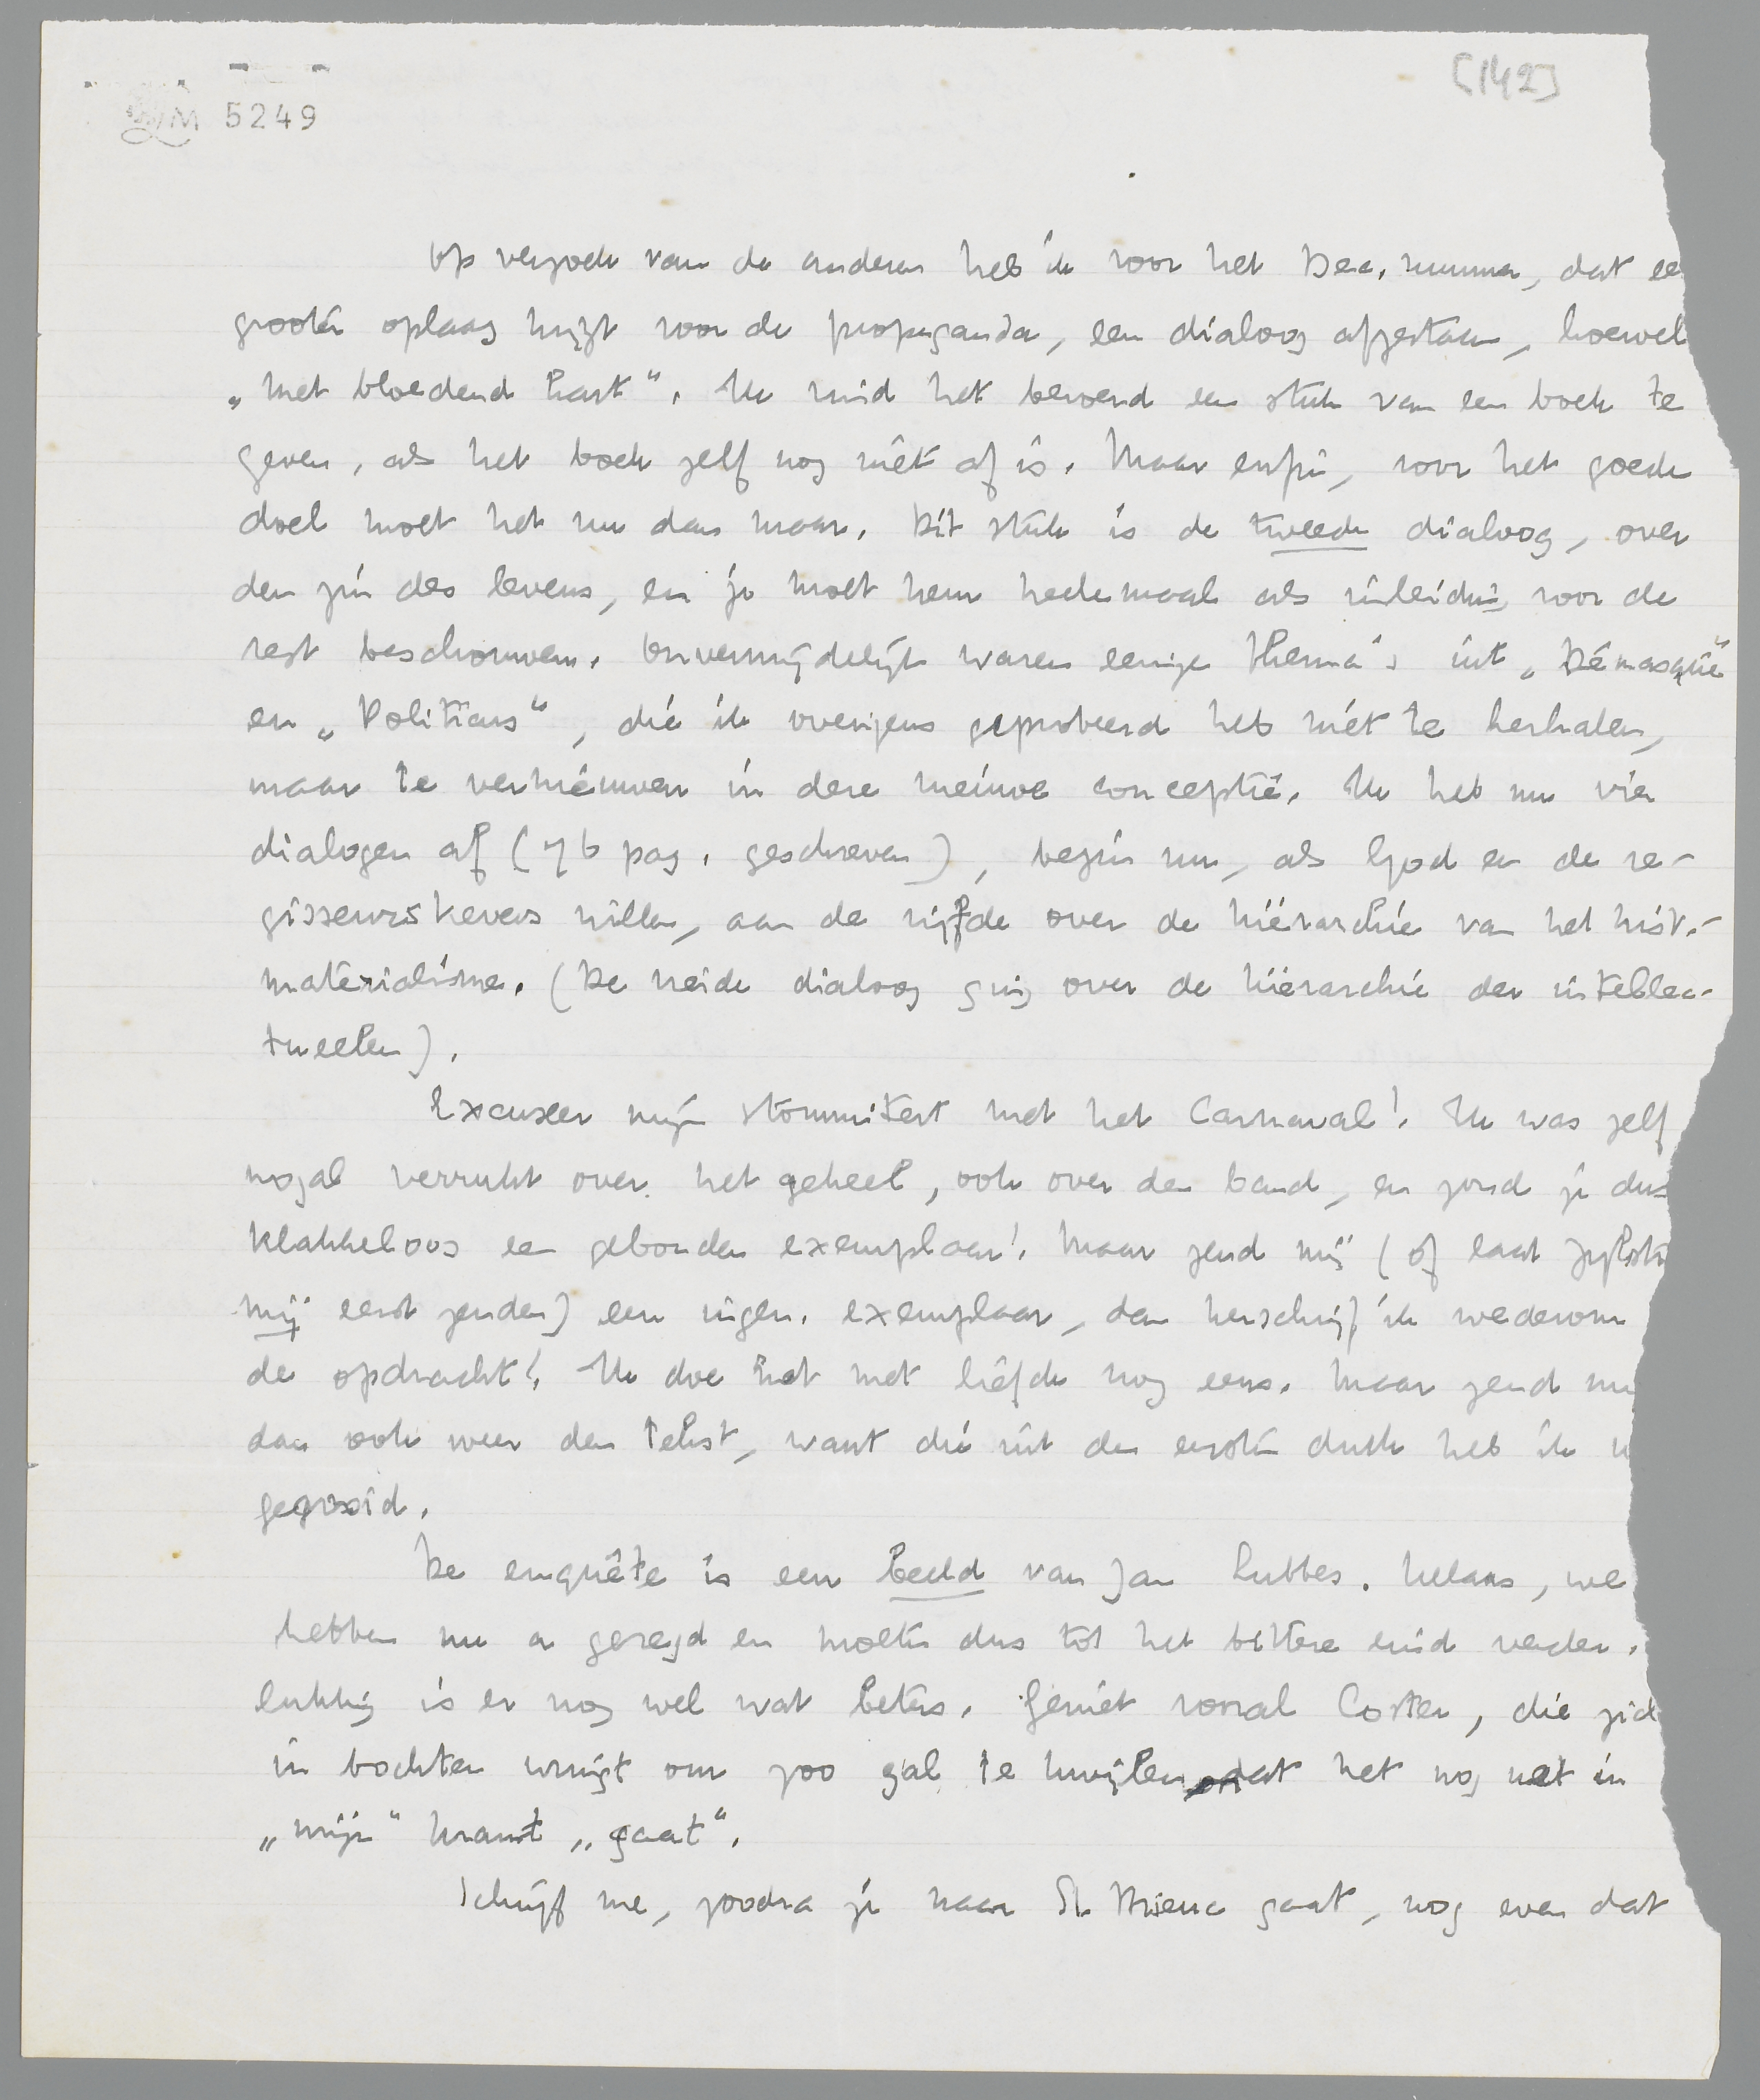 [142]
LM 5249
Op verzoek van de anderen heb ik voor het Dec. nummer, dat ee
grooter oplaag krijgt voor de propaganda, een dialoog afgestaan, hoewel
„met bloedend hart". Ik vind het beroerd een stuk van een boek te
geven, als het boek zelf nog niet af is. Maar enfin, voor het goede
doel moet het nu dan maar. Dit stuk is de tweede dialoog, over
den zin des levens, en je moet hem heelemaal als inleiding voor de
rest beschouwen. Onvermijdelijk waren eenige thema's uit „Démasqué"
en „Politicus", die ik overigens geprobeerd heb niet te herhalen,
maar te vernieuwen in deze nieuwe conceptie. Ik heb nu vier
dialogen af (76 pag. geschreven), begin nu, als God en de re-
gisseurskevers willen, aan de vijfde over de hiërarchie van het hist.-
materialisme. (De vierde dialoog ging over de hiërarchie der intellec-
tueelen).
Excuseer mijn stommiteit met het Carnaval! Ik was zelf
nogal verrukt over het geheel, ook over den band, en zond je dus
klakkeloos een gebonden exemplaar! Maar zend mij (of laat Zijlstra
mij eerst zenden) een ingen. exemplaar, dan herschrijf ik wederom
de opdracht! Ik doe het met liefde nog eens. Maar zend me
dan ook weer den tekst, want die uit den eersten druk heb ik
gegooid.
De enquête is een beeld van Jan Lubbes. Helaas, we
hebben nu a gezegd en moeten dus tot het bittere eind verder.
Gelukkig is er nog wel wat beters. Geniet vooral Coster, die zich
in bochten wringt om zoo gal te kwijlen dat het nog net in
„mijn" krant „gaat".
Schrijf me, zoodra je naar St. Brieuc gaat, nog even dat